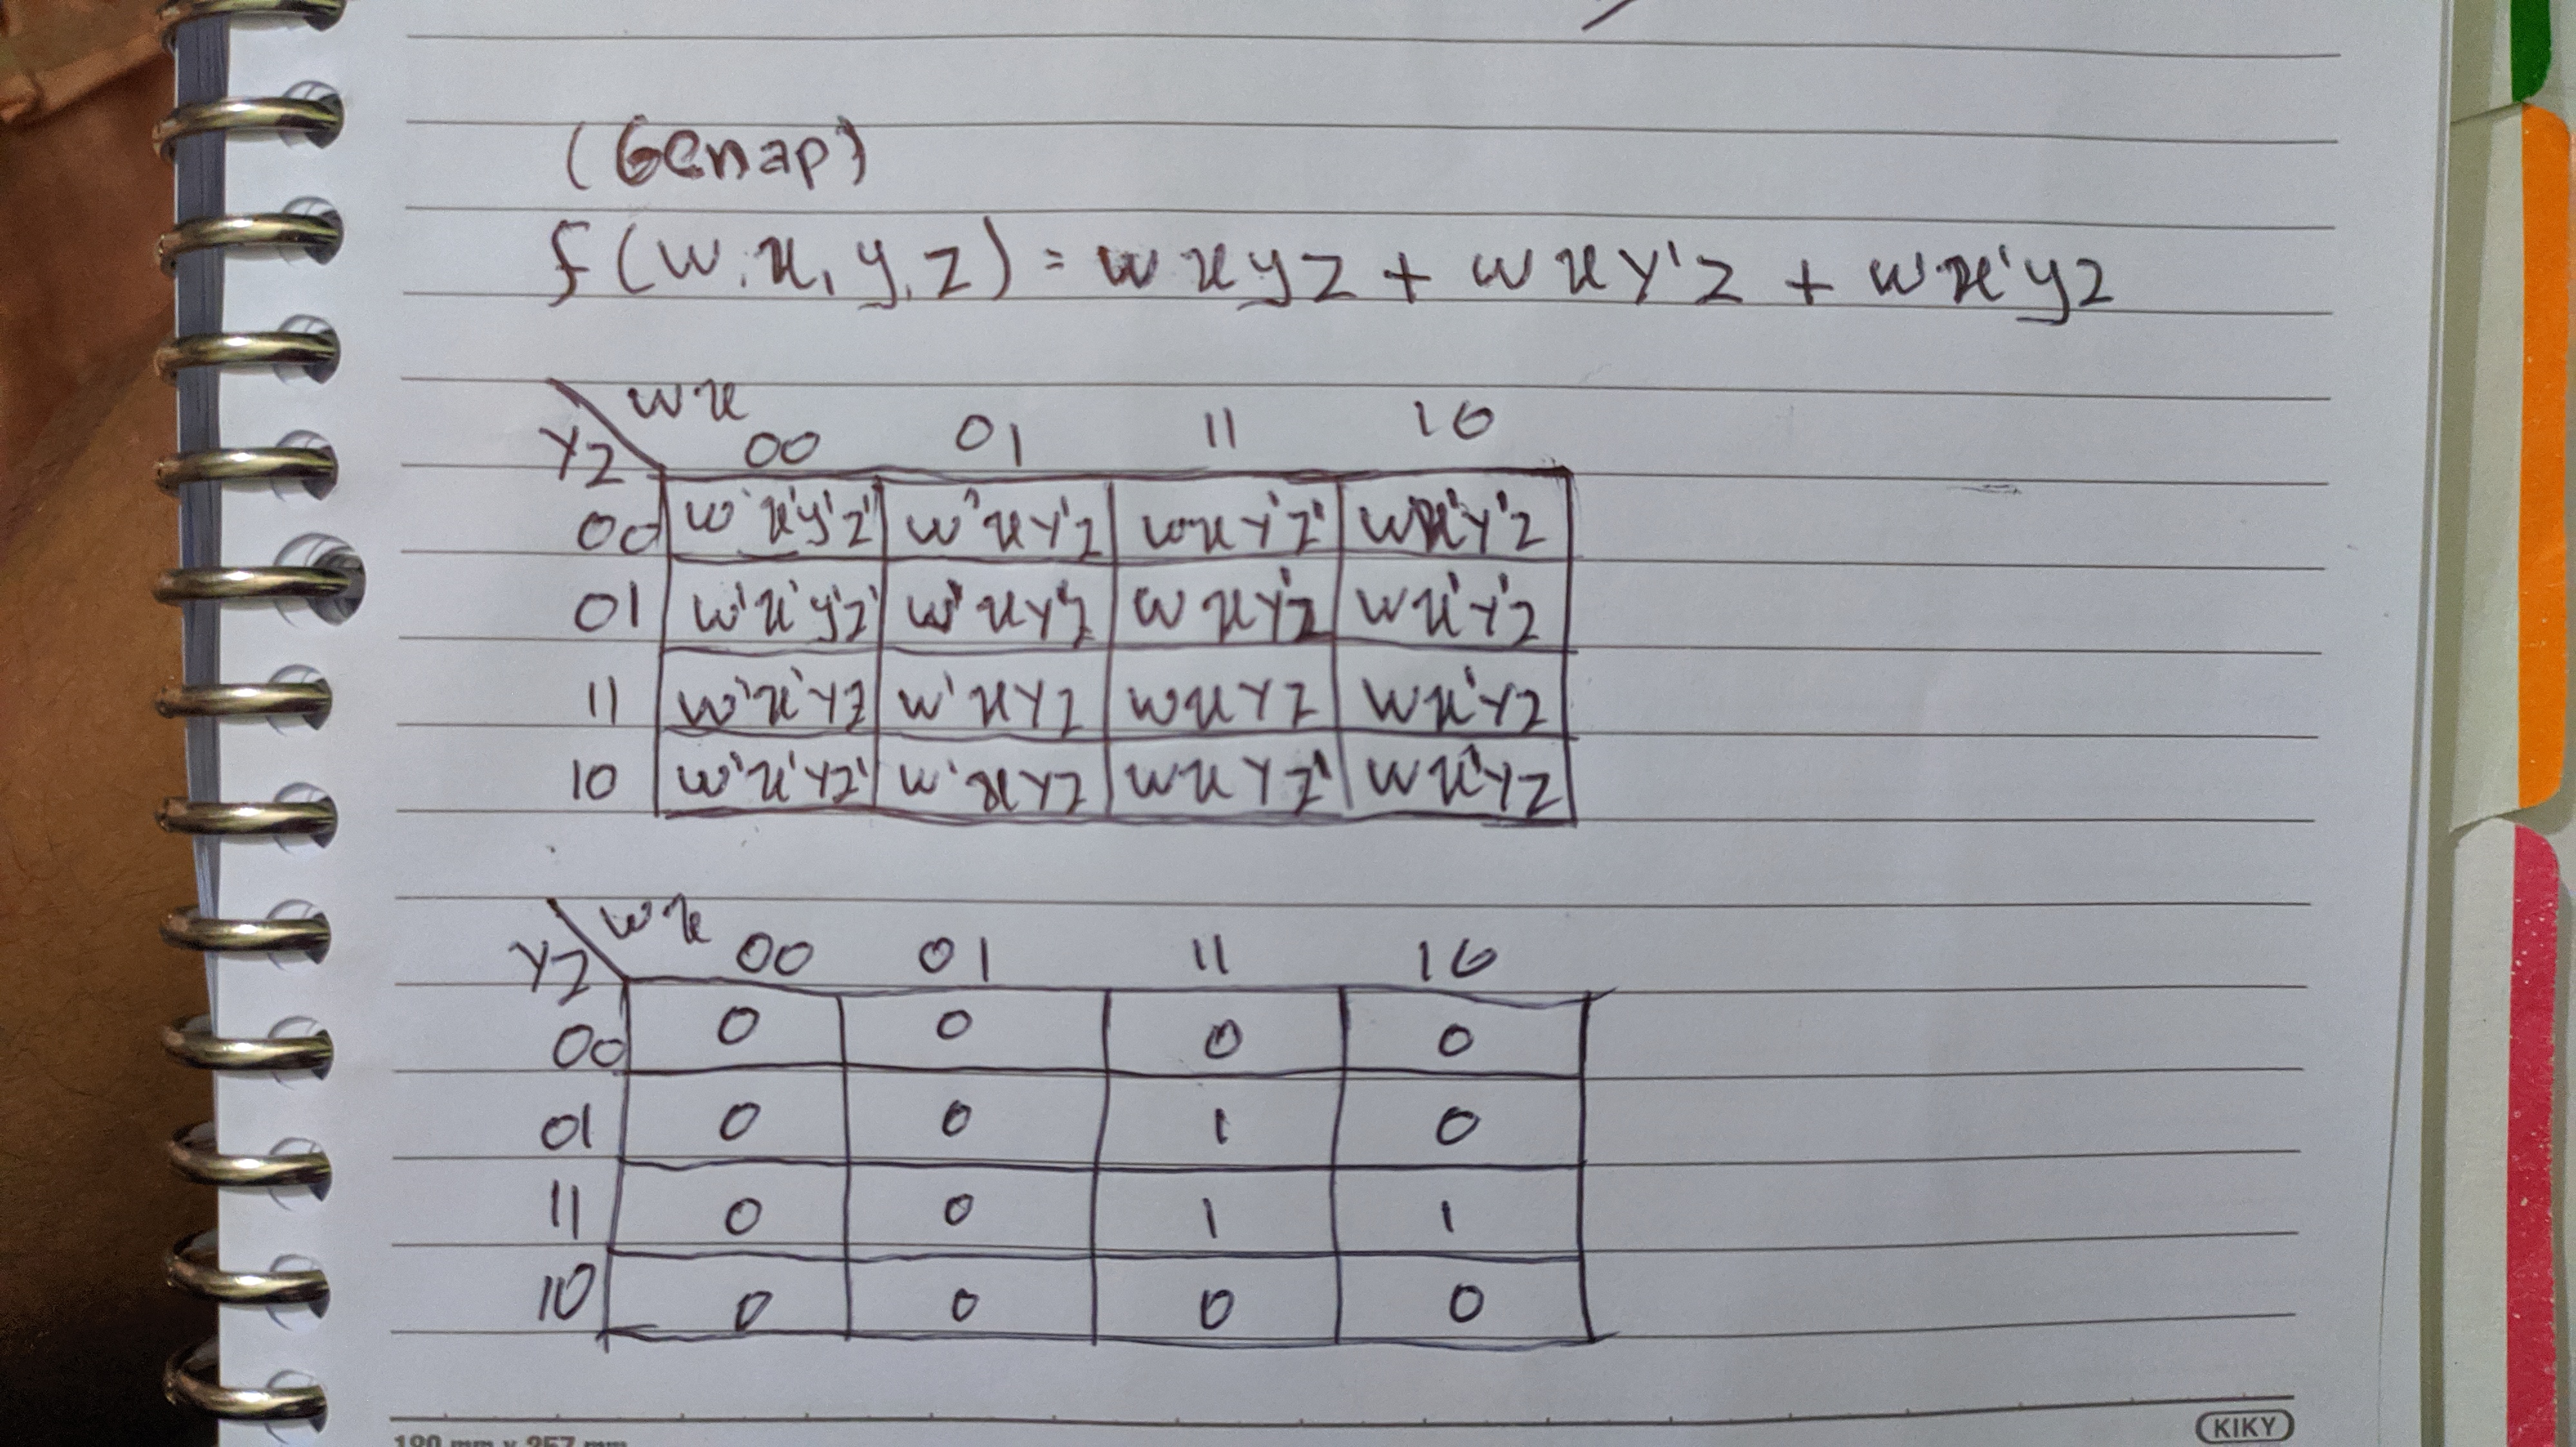 (Genap)
f(w.x,y,z) = wxyz + wxy'z + wx'yz
wx
yz 00 01 11 10
00 w'x'y'z' w'xy'z wxy'z' wx'y'z
01 w'x'y'z' w'xy'z wxy'z wx'y'z
11 w'x'yz w'xyz wxyz wx'yz
10 w'x'yz' w'xyz wxyz' wx'yz
wx
yz 00 01 11 10
00 0 0 0 0
01 0 0 1 0
11 0 0 1 1
10 0 0 0 0
KIKY